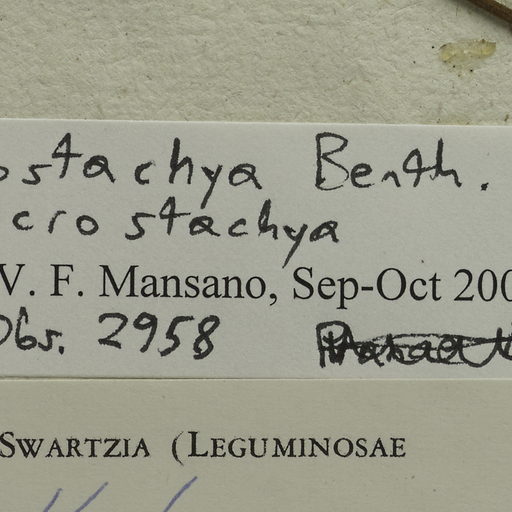 ostachya Benth.
crostachya
V. F. Mansano, Sep-Oct 200
Obs. 2958
SWARTZIA (LEGUMINOSAE